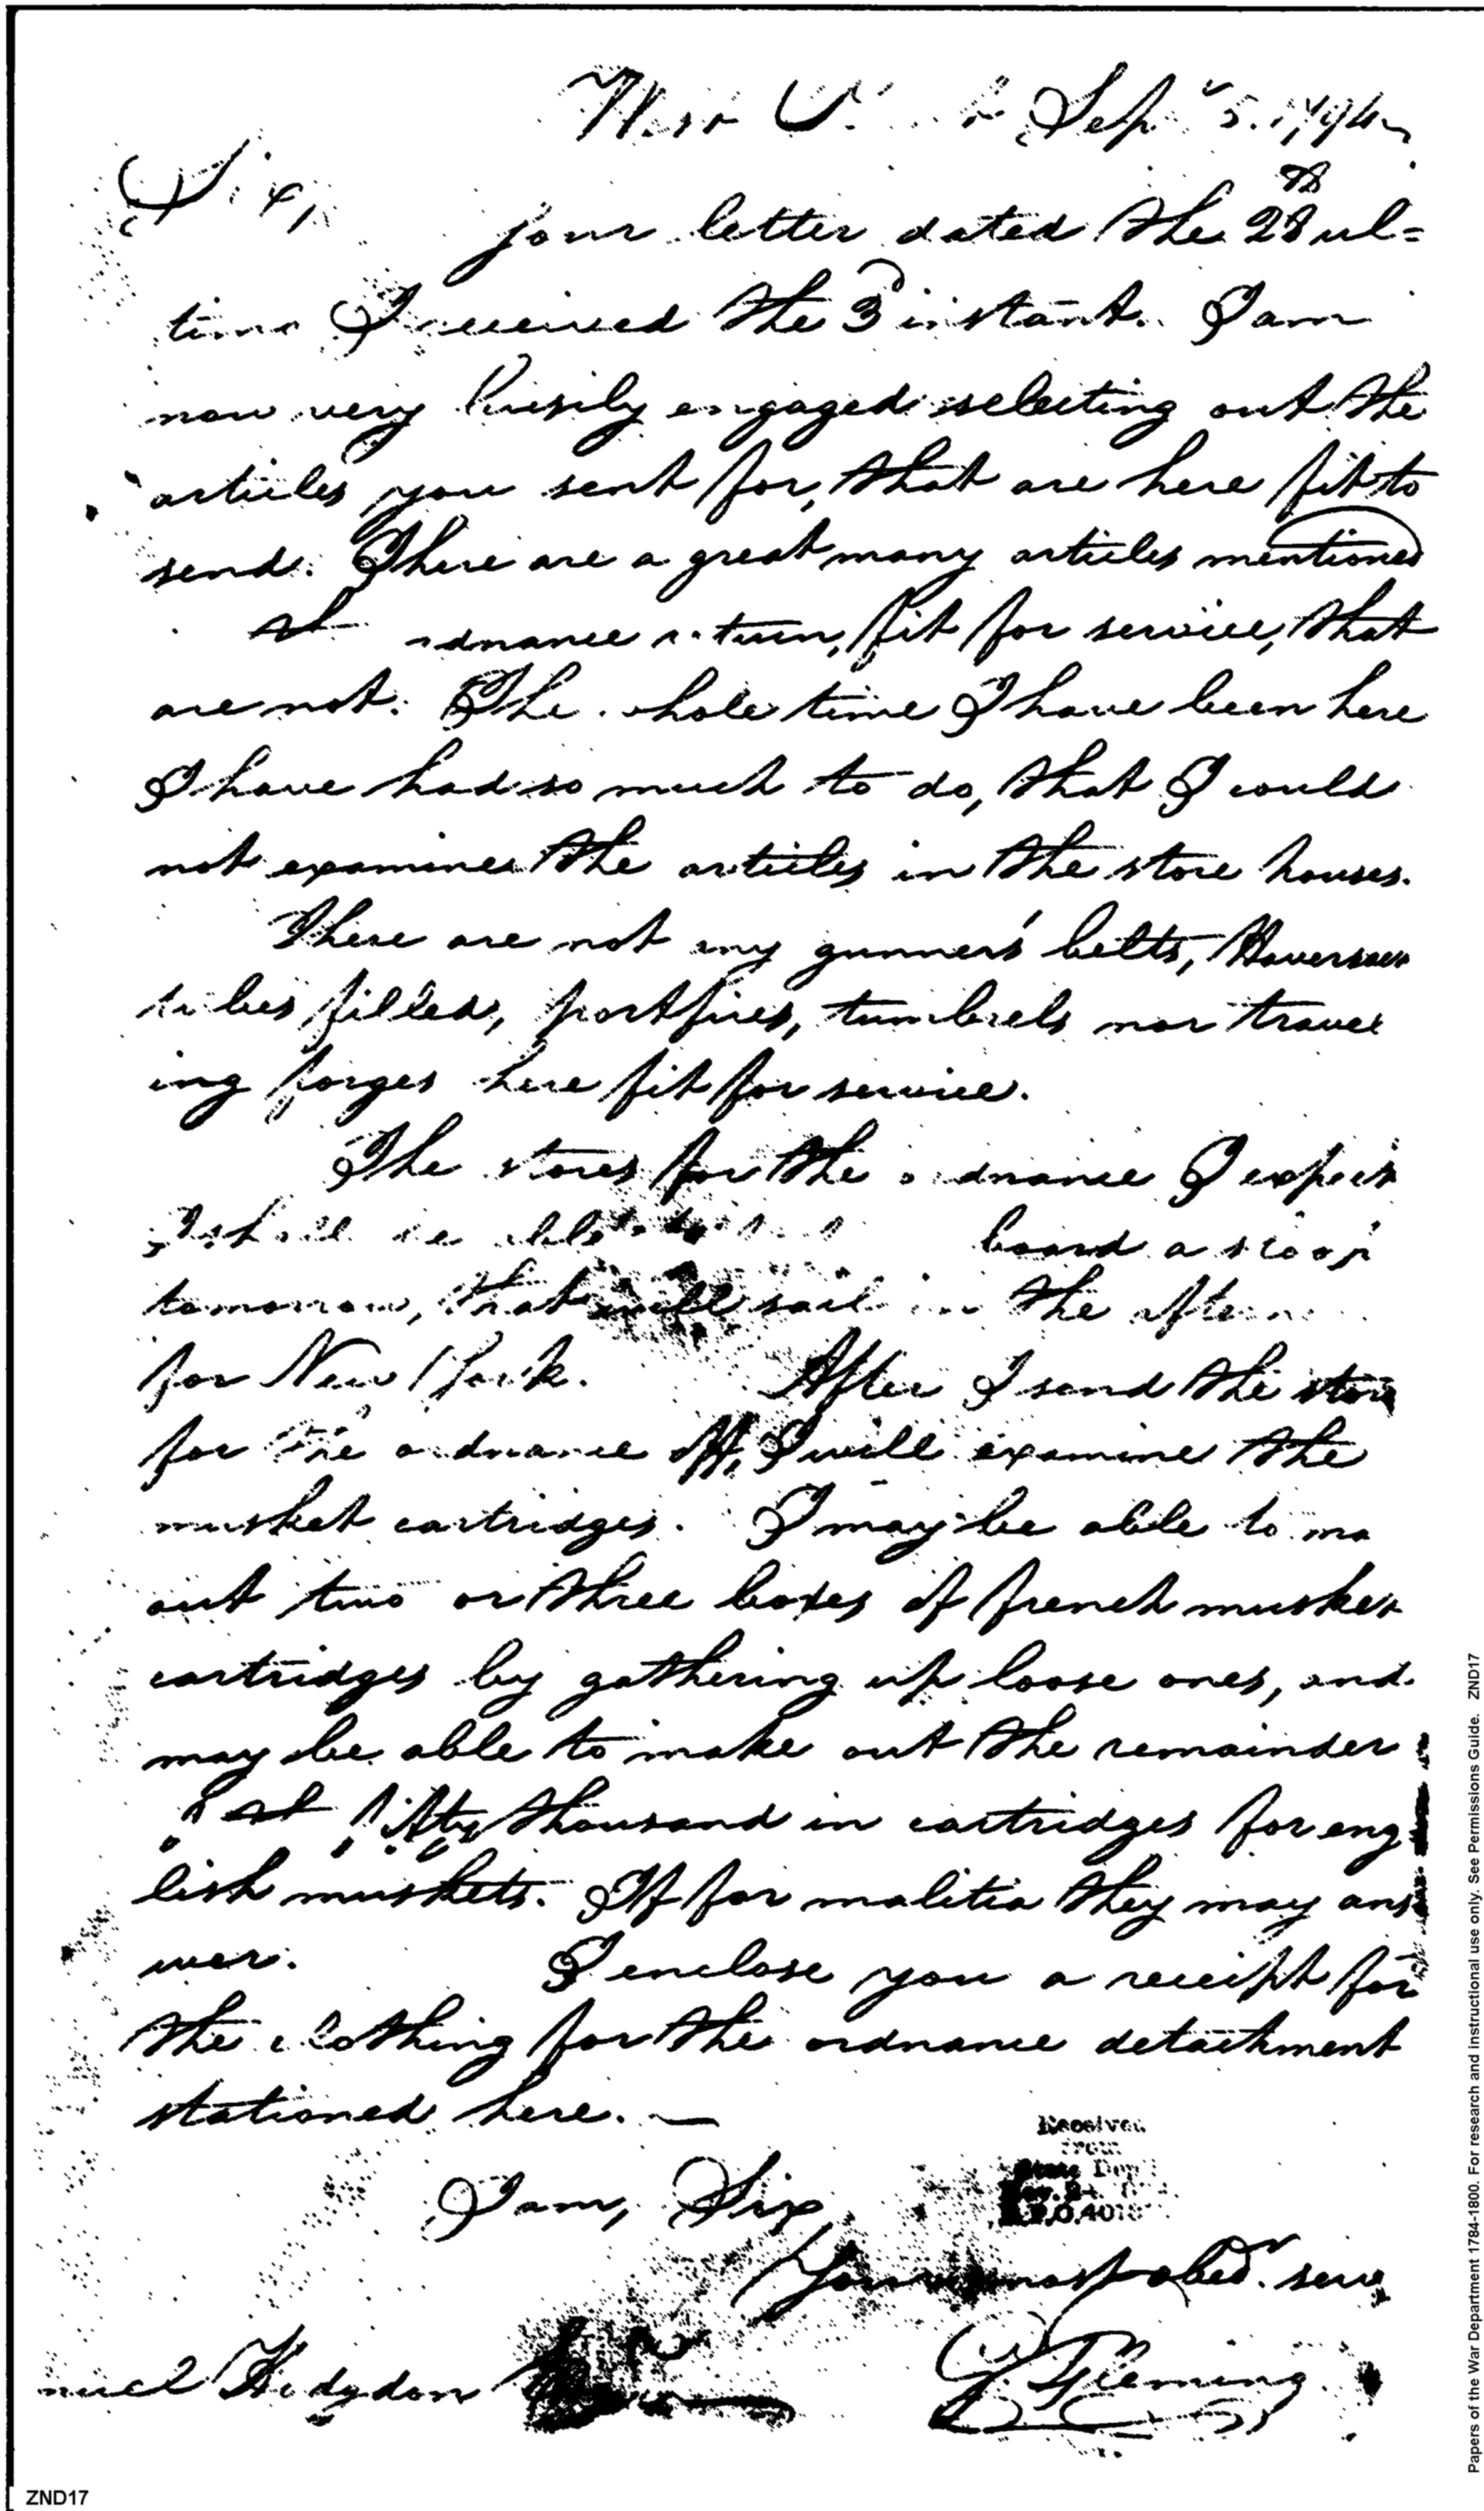 West Sep 5. 1794
Sir,
your letter dated the 28th ul=
timo I received the 3d instant. I am
now very busily engaged selecting out the
articles you sent for, that are here fit to
send. There are a great many articles mentioned
ordnance return, fit for service, that
are not. The whole time I have been here
I have had so much to do, that I could
not examine the articles in the store houses.
There are not any gunners' belts, Haversac
tubes filled, portfires, tumbrels nor travel
ing forges here fit for service.
The stores for the ordnance I expect
I shall be able board a sloop
tomorrow, that will sail in the aftern
for New York. After I send the stores
for the ordnance off, I will examine the
musket cartridges. I may be able to ma
out two or three boxes of french musket
cartridges by gathering up loose ones, and
may be able to make out the remainder
of the fifty thousand in cartridges for eng
lish muskets. If for malitia they may ans
wer. I enclose you a receipt for
the clothing for the ordnance detachment
stationed here. —
I am, Sir,
Your most obed. serv
G. Fleming
muel Hodgdon
Received
from
State Dept
ZND17
Papers of the War Department 1784-1800. For research and instructional use only. See Permissions Guide. ZND17